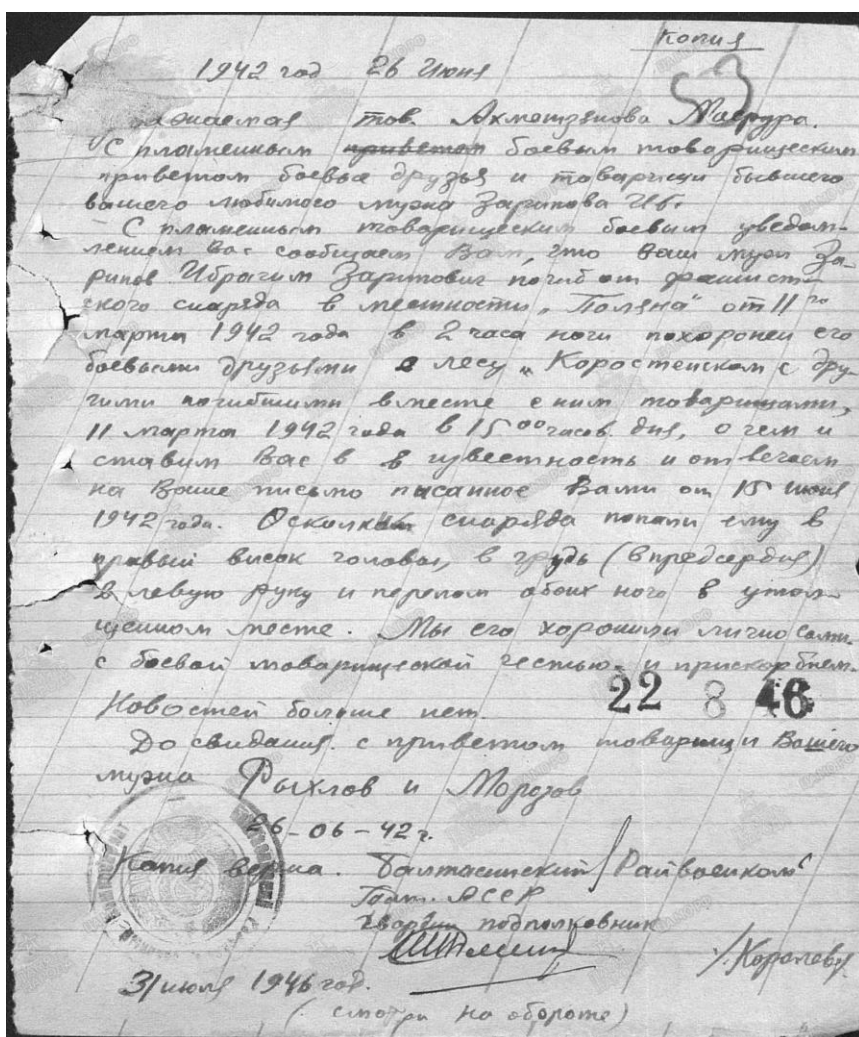 Копия
53
1942 год 26 Июня
Уважаемая тов. Ахметзянова Масрура.
С пламенным приветом боевым товарищеским
приветом боевые друзья и товарищи бывшего
вашего любимого мужа Зарипова Иб.
С пламенным товарищеским боевым уведом-
лением Вас сообщаем Вам, что Ваш муж За-
рипов Ибрагим Зарипович погиб от фашист-
ского снаряда в местности „Поляна" от 11го
марта 1942 года в 2 часа ночи похоронен его
боевыми друзьями в лесу „Коростенском с дру-
гими погибшими вместе с ним товарищами,
11 марта 1942 года в 15 00 часов дня, о чем и
ставим Вас в в известность и отвечаем
на Ваше письмо писанное Вами от 15 июня
1942 года. Осколки снаряда попали ему в
правый висок головы, в грудь (в предсердия)
в левую руку и перелом обоих ного в утол-
щенном месте. Мы его хоронили лично сами
с боевой товарищеской честью и прискорбием.
22 8 46
Новостей больше нет.
До свидания с приветом товарищи Вашего
мужа Рыхлов и Морозов
26-06-42 г.
Копия верна. Балтасинский Райвоенком
Тат. АССР
гвардии подполковник
/Королев/
31 июля 1946 год.
(смотри на обороте)